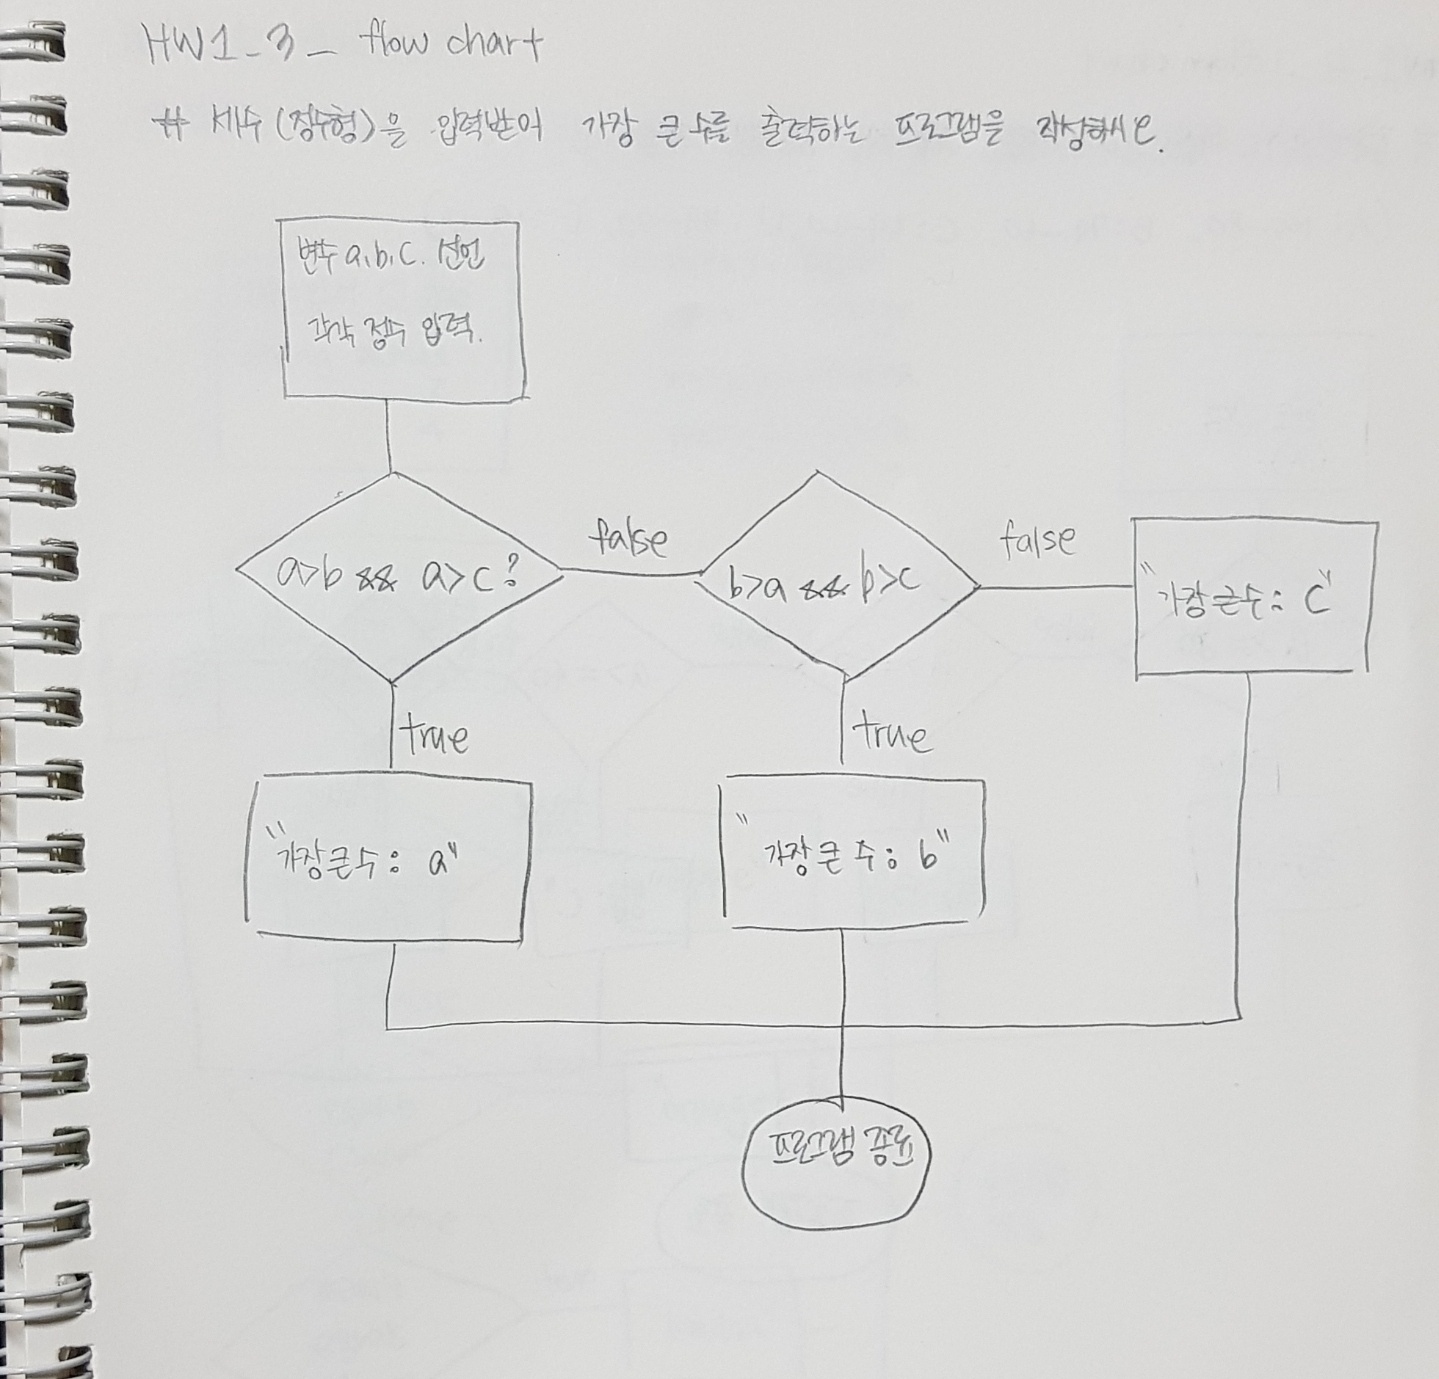 HW1_3_ flow chart
# 세수(정수형)을 입력받아 가장 큰 수를 출력하는 프로그램을 작성하시오.
변수 a, b, c. 선언
각각 정수 입력.
a>b && a>c ?
false
b>a && b>c
false
"가장 큰 수 : c"
true
true
"가장 큰 수 : a"
"가장 큰 수 : b"
프로그램 종료